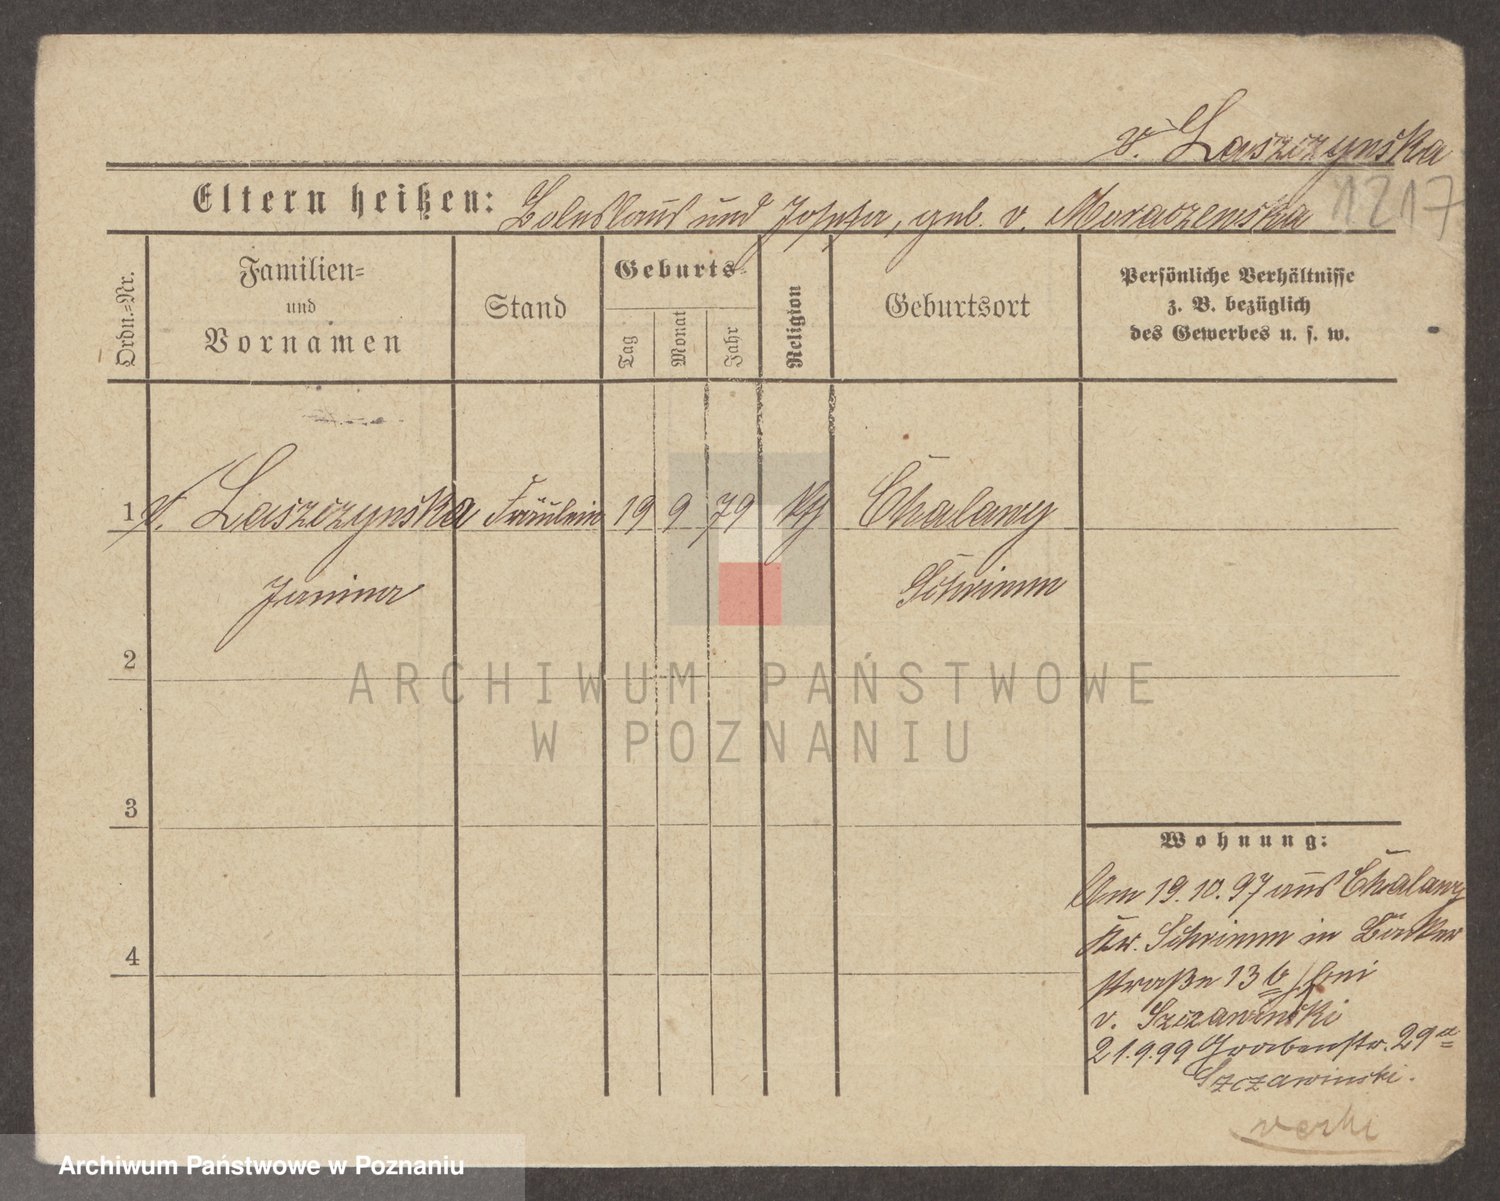 v. Laszczynska
1217
Eltern heißen: Boleslaus und Josefa, geb. v. Moraczewska
Ordn.=Nr.
Familien=
und
Vornamen
Stand
Geburts=
Tag
Monat
Jahr
Religion
Geburtsort
Persönliche Verhältnisse
z. B. bezüglich
des Gewerbes u. s. w.
1 v. Laszczynska Fräulein 19 9 79 Chalawy
Janina Schrimm
2
3
4
Wohnung:
Am 19.10.97 aus Chalawy
Kr. Schrimm in Bäcker
straße 13 b, bei
v. Szczawinski
21.9.99 Grabenstr. 29a
Szczawinski.
ARCHIWUM PAŃSTWOWE
W POZNANIU
Archiwum Państwowe w Poznaniu